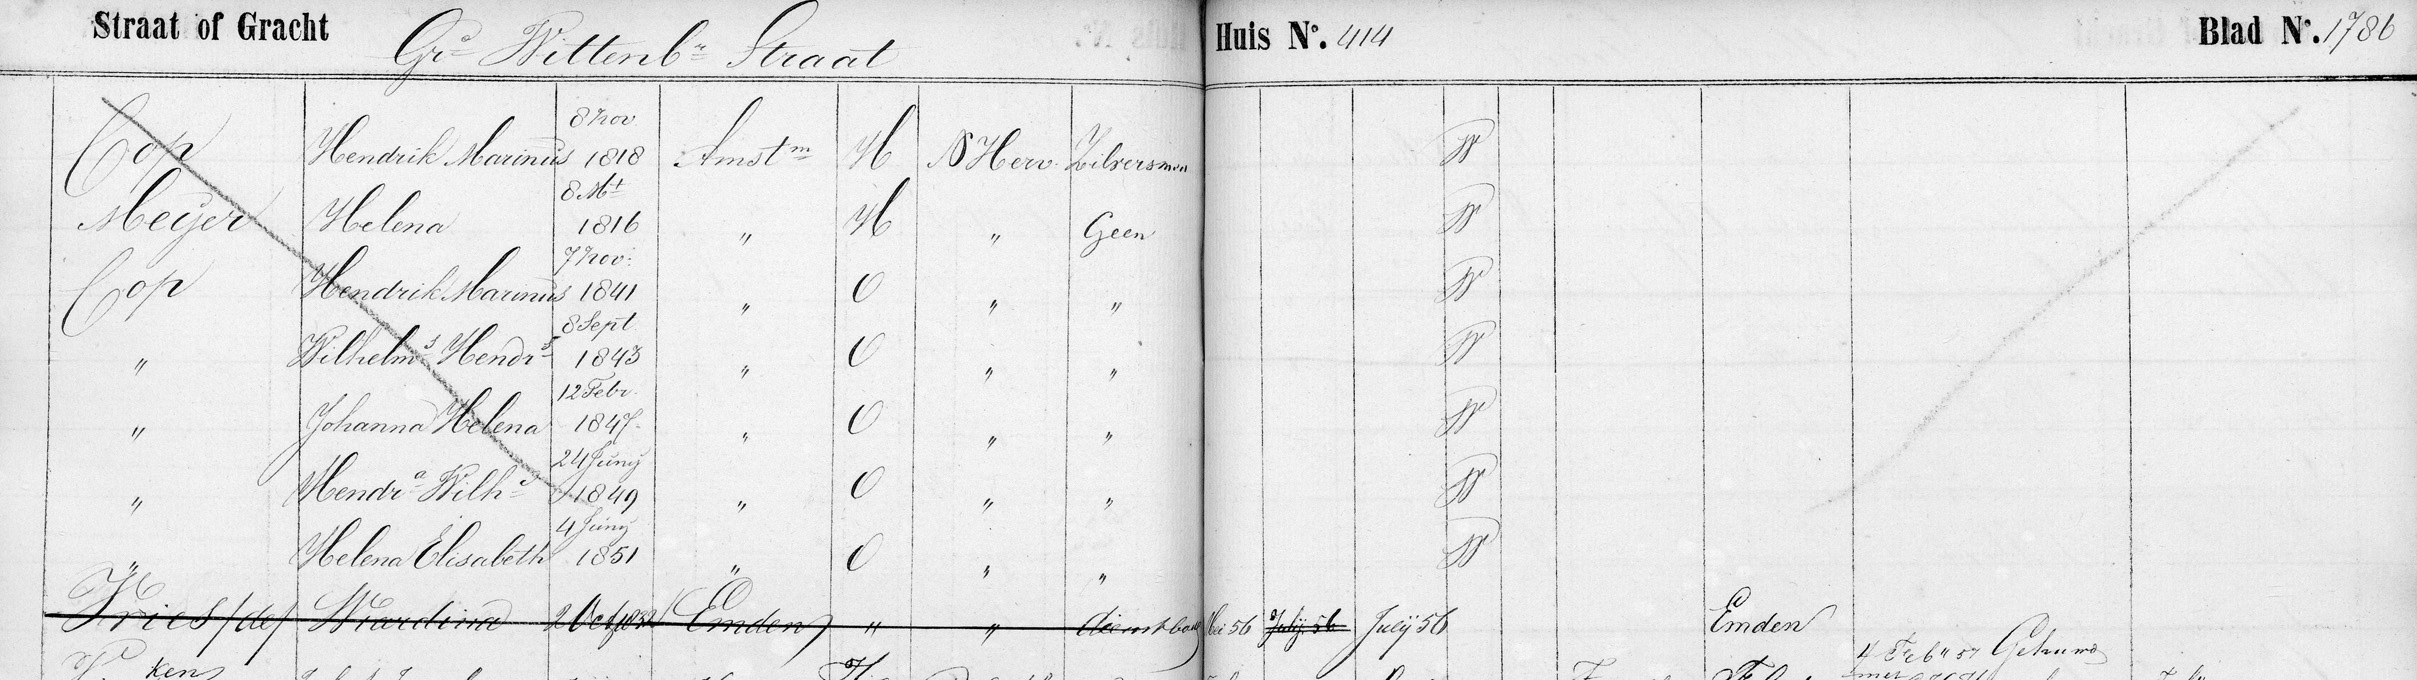 Straat of Gracht Gre Wittenbn Straat Huis No. 414 Blad No. 1786
Cop Hendrik Marinus 8 nov 1818 Amstm H N Herv. Zilversmn W
Meyer Helena 8 Mt 1816 " H " Geen W
Cop Hendrik Marinus 7 nov: 1841 " O " " W
" Wilhelms Hendrs 8 Sept 1843 " O " " W
" Johanna Helena 12 Febr. 1847 " O " " W
" Hendra Wilhe 24 Juny 1849 " O " " W
" Helena Elisabeth 4 Juny 1851 " O " " W
Vries /de/ Wardina 2 Oct 1832 Emden O " " dienstbode Mei 56 July 56 July 56 Emden
4 Feb 57